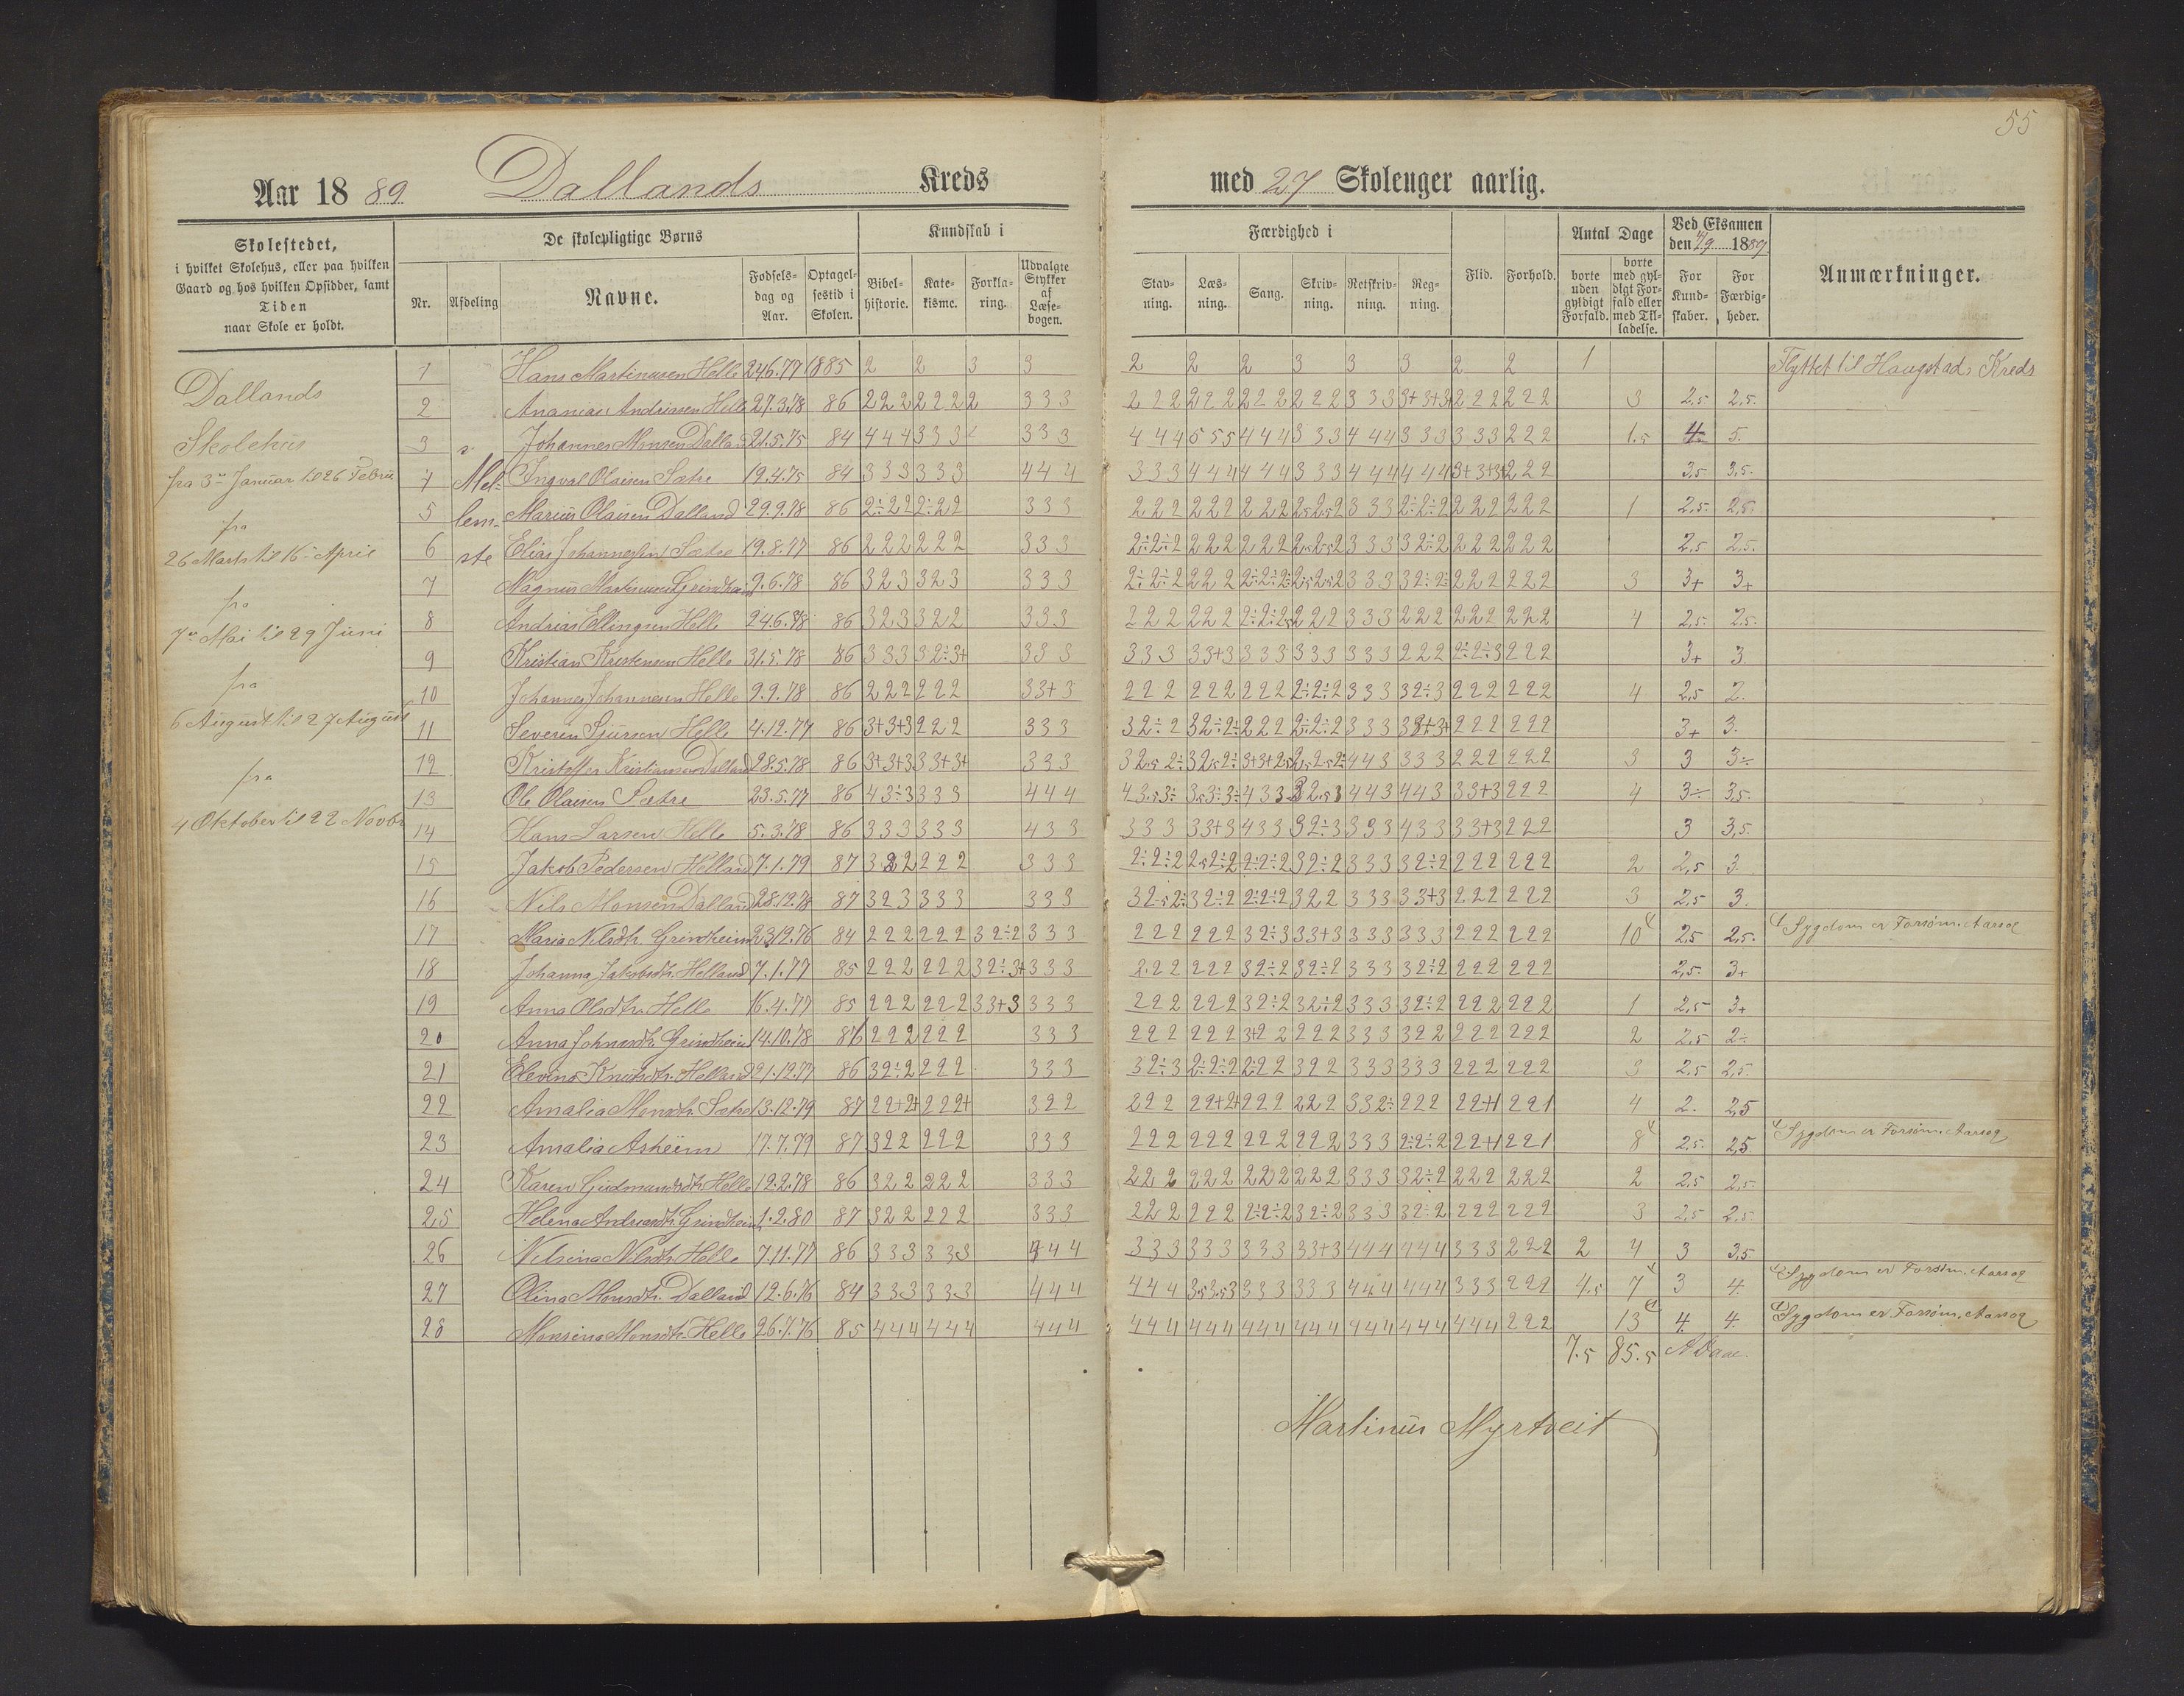 55
Aar 18 89 Dallands Kreds med 27 Skoleuger aarlig.
Skolestedet,
i hvilket Skolehus, eller paa hvilken
Gaard og hos hvilken Opsidder, samt
Tiden
naar Skole er holdt.
De skolepligtige Børns
Nr. Afdeling Navne. Fødsels-dag og Aar. Optagel-sestid i Skolen.
Kundskab i
Bibel-historie. Kate-kisme. Forkla-ring. Udvalgte Stykker af Læse-bogen.
Færdighed i
Stav-ning. Læs-ning. Sang. Skriv-ning. Retskriv-ning. Reg-ning. Flid. Forhold.
Antal Dage
borte uden gyldigt Forfald. borte med gyl-digt For-fald eller med Til-ladelse.
Ved Eksamen
den 4/9 1889
For Kund-skaber. For Færdig-heder.
Anmærkninger.
Dallands
Skolehus
fra 3die Januar til 26 Febru.
fra
26 Marts til 16 April
fra
7de Mai til 29 Juni
fra
6 August til 27 August
fra
4 Oktober til 22 Novbr
Mel-
lem-
ste
1 Hans Martinusen Helle 24.6.77 1885 2 2 3 3 2 2 2 3 3 3 2 2 1 Flyttet til Haugstads Kreds
2 Ananias Andreassen Helle 27.3.78 86 222 222 2 333 222 222 222 222 333 3+3+3 222 222 3 2,5 2,5.
3 Johannes Monsen Dalland 21.5.75 84 444 333 333 444 555 444 333 444 333 333 222 1.5 4 5.
4 Ingval Olaisen Sætre 19.4.75 84 333 333 444 333 444 444 333 444 444 3+3+3+ 222 3,5 3,5.
5 Marius Olaisen Dalland 29.9.78 86 2÷22 2÷22 333 222 222 222 2,52,52 333 2÷2÷2 222 222 1 2,5. 2,5.
6 Elias Johannessen Sætre 19.8.77 86 222 222 333 2÷2÷2 222 222 2,52,52 333 32÷2 222 222 2,5 2,5.
7 Magnus Martinusen Grindheim 9.6.78 86 323 323 333 2÷2÷2 222 2÷2÷2÷ 2,52,52 333 32÷2÷ 222 222 3 3+ 3+
8 Andreas Ellingsen Helle 24.6.78 86 323 322 333 222 222 2÷2÷2,5 222 333 222 222 222 4 2,5. 2,5.
9 Kristian Kristensen Helle 31.5.78 86 333 32÷3+ 333 333 33+3 333 333 333 222 2÷2÷3 222 3+ 3
10 Johannes Johannesen Helle 9.9.78 86 222 222 33+3 222 222 222 2÷2÷2 333 32÷3 222 222 4 2,5 2.
11 Severin Sjursen Helle 4.12.77 86 3+3+3 222 333 32÷2 32÷2÷ 222 2÷2÷2 333 33+3+ 222 222 3+ 3.
12 Kristoffer Kristiansen Dalland 28.5.78 86 3+3+3 33+3+ 333 32,52÷ 32,52÷ 3+3+2,5 2,52,52÷ 443 333 222 222 3 3 3÷
13 Ole Olaisen Sætre 23.5.77 86 43÷3 333 444 43,53÷ 3,53÷3÷ 433 32,53 443 443 33+3 222 4 3÷ 3,5.
14 Hans Larsen Helle 5.3.78 86 333 333 433 333 33+3 433 32÷3 333 433 33+3 222 3 3,5.
15 Jakob Pedersen Helland 7.1.79 87 322 222 333 2÷2÷2 2,52÷2 2÷2÷2 32÷2 333 32÷2 222 222 2 2,5 3.
16 Nils Monsen Dalland 28.12.78 87 323 333 333 32,52÷ 32÷2 2÷2÷2 322 333 33+3 222 222 3 2,5 3.
17 Maria Nilsdtr. Grindheim 23.12.76 84 222 222 32÷2 333 222 222 32÷3 33+3 333 333 222 222 10 2,5 2,5. Sygdom er Forsøm. Aarsag
18 Johanna Jakobsdtr. Helland 7.1.77 85 222 222 32÷3+ 333 222 222 32÷2 32÷2 333 32÷2 222 222 2,5. 3+
19 Anna Olsdtr. Helle 16.4.77 85 222 222 33+3 333 222 222 32÷2 32÷2 333 32÷2 222 222 1 2,5 3+
20 Anna Johnsdtr. Grindheim 14.10.78 86 222 222 333 222 222 3+22 222 333 322 222 222 2 2,5 2÷
21 Elevina Knutsdtr. Helland 21.12.77 86 32÷2 222 333 32÷3 2÷2÷2 2÷22 322 333 333 222 222 3 2.5 2,5.
22 Amalia Monsdtr. Sætre 13.12.79 87 22+2+ 222+ 322 222 22+2+ 222 222 332÷ 222 22+1 221 4 2. 2,5
23 Amalia Askeim 17.7.79 87 322 222 333 222 222 222 222 333 2÷2÷2 22+1 221 8 2,5. 2,5 Sygdom er Forsøm. Aarsag
24 Karen Gudmundsdtr. Helle 12.2.78 86 322 222 333 222 222 222 222 333 32÷2 222 222 2 2,5 2,5.
25 Helena Andreasdtr. Grindheim 1.2.80 87 322 222 333 222 222 2÷2÷2 32÷2 333 32÷2 222 222 3 2,5 2,5.
26 Nilsina Nilsdtr. Helle 7.11.77 86 333 333 444 333 333 333 33+3 444 444 333 222 2 4 3 3,5
27 Olina Monsdtr. Dalland 12.6.76 84 333 333 444 444 3,53,53 333 333 444 444 333 222 4.5 7 3 4. Sygdom er Forsøm. Aarsag
28 Monsina Monsdtr. Helle 26.7.76 85 444 444 444 444 444 444 444 444 444 444 222 13 4. 4. Sygdom er Forsøm. Aarsag
7.5 85.5
Martinus Myrtveit